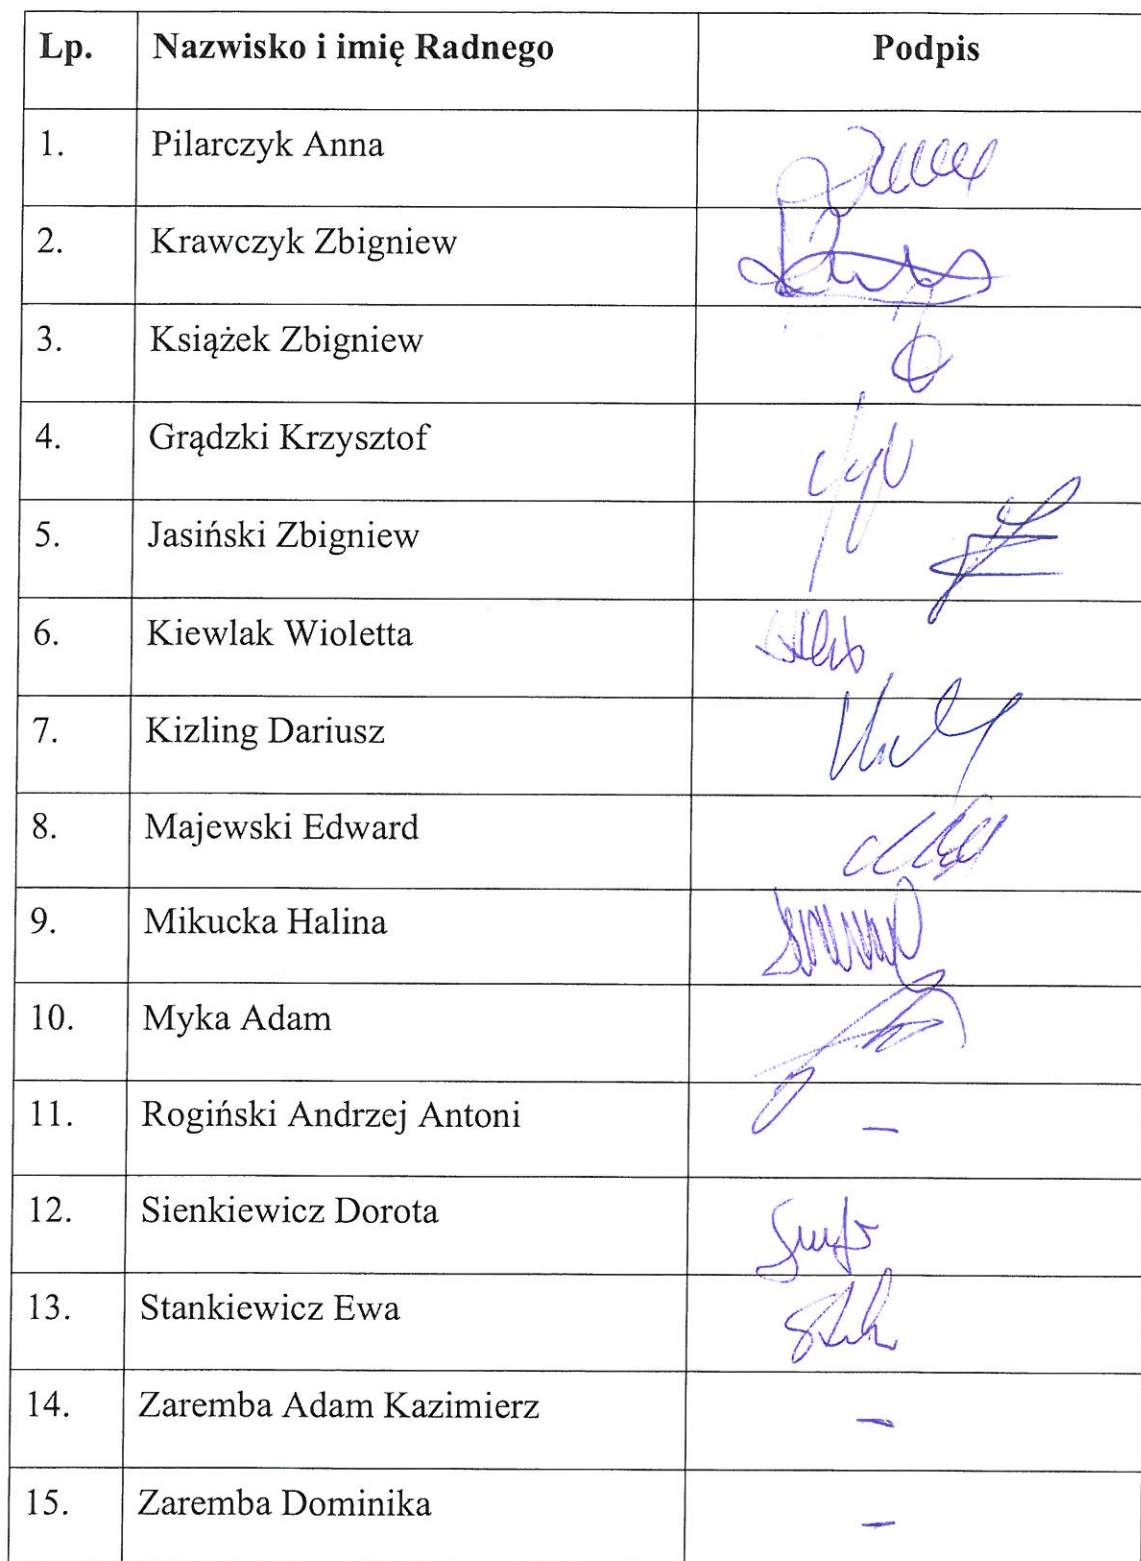 Lp. Nazwisko i imię Radnego Podpis
1. Pilarczyk Anna
2. Krawczyk Zbigniew
3. Książek Zbigniew
4. Grądzki Krzysztof
5. Jasiński Zbigniew
6. Kiewlak Wioletta
7. Kizling Dariusz
8. Majewski Edward
9. Mikucka Halina
10. Myka Adam
11. Rogiński Andrzej Antoni –
12. Sienkiewicz Dorota
13. Stankiewicz Ewa
14. Zaremba Adam Kazimierz –
15. Zaremba Dominika –